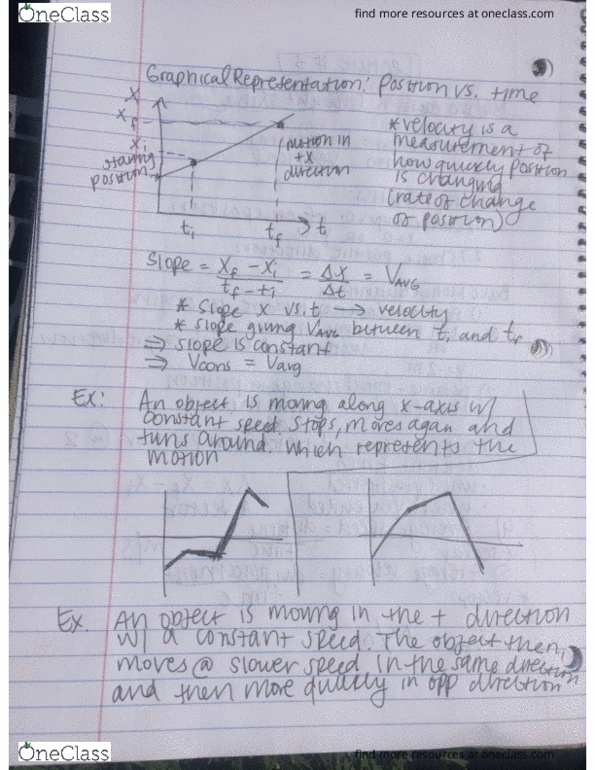 OneClass
find more resources at oneclass.com
Graphical Representation: Position vs. time
X
Xf
Xi
starting
position
motion in
+X
direction
ti
tf
t
* velocity is a
measurement of
how quickly position
is changing
(rate of change
of position)
Slope = Xf - Xi / tf - ti = ΔX / Δt = VAVG
* Slope X vs. t → velocity
* slope giving VAVG between ti and tf
⇒ slope is constant
⇒ Vcons = Vavg
Ex: An object is moving along x-axis w/
constant speed, stops, moves again and
turns around. which represents the
motion
Ex. An object is moving in the + direction
w/ a constant speed. The object then
moves @ slower speed in the same direction
and then more quickly in opp direction
OneClass
find more resources at oneclass.com